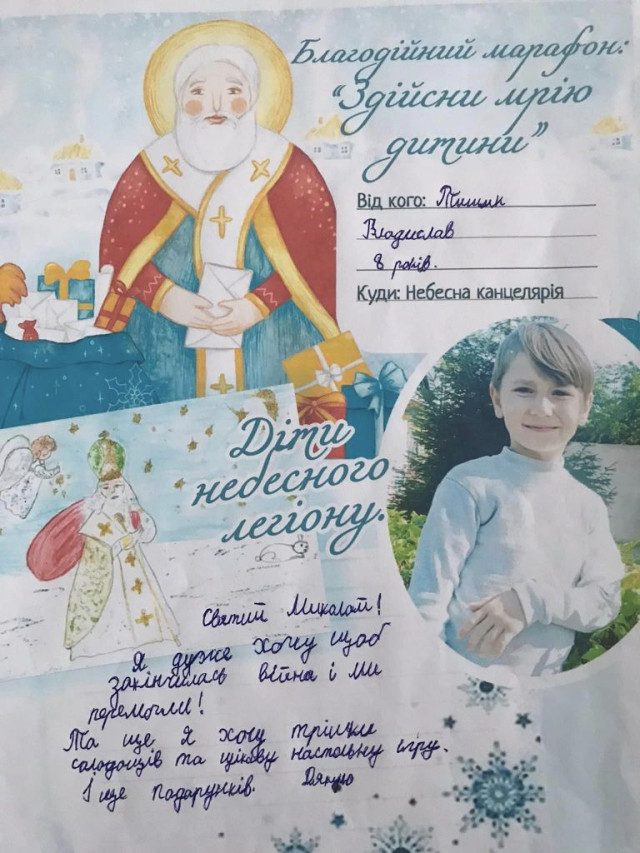 Благодійний марафон:
“Здійсни мрію
дитини”
Від кого: Тищик
Владислав
8 років.
Куди: Небесна канцелярія
Діти
небесного
легіону.
Святий Миколай!
Я дуже хочу щоб
закінчилась війна і ми
перемогли!
Та ще я хочу трішки
солодощів та цікаву настольну ігру.
І ще подарунків. Дякую